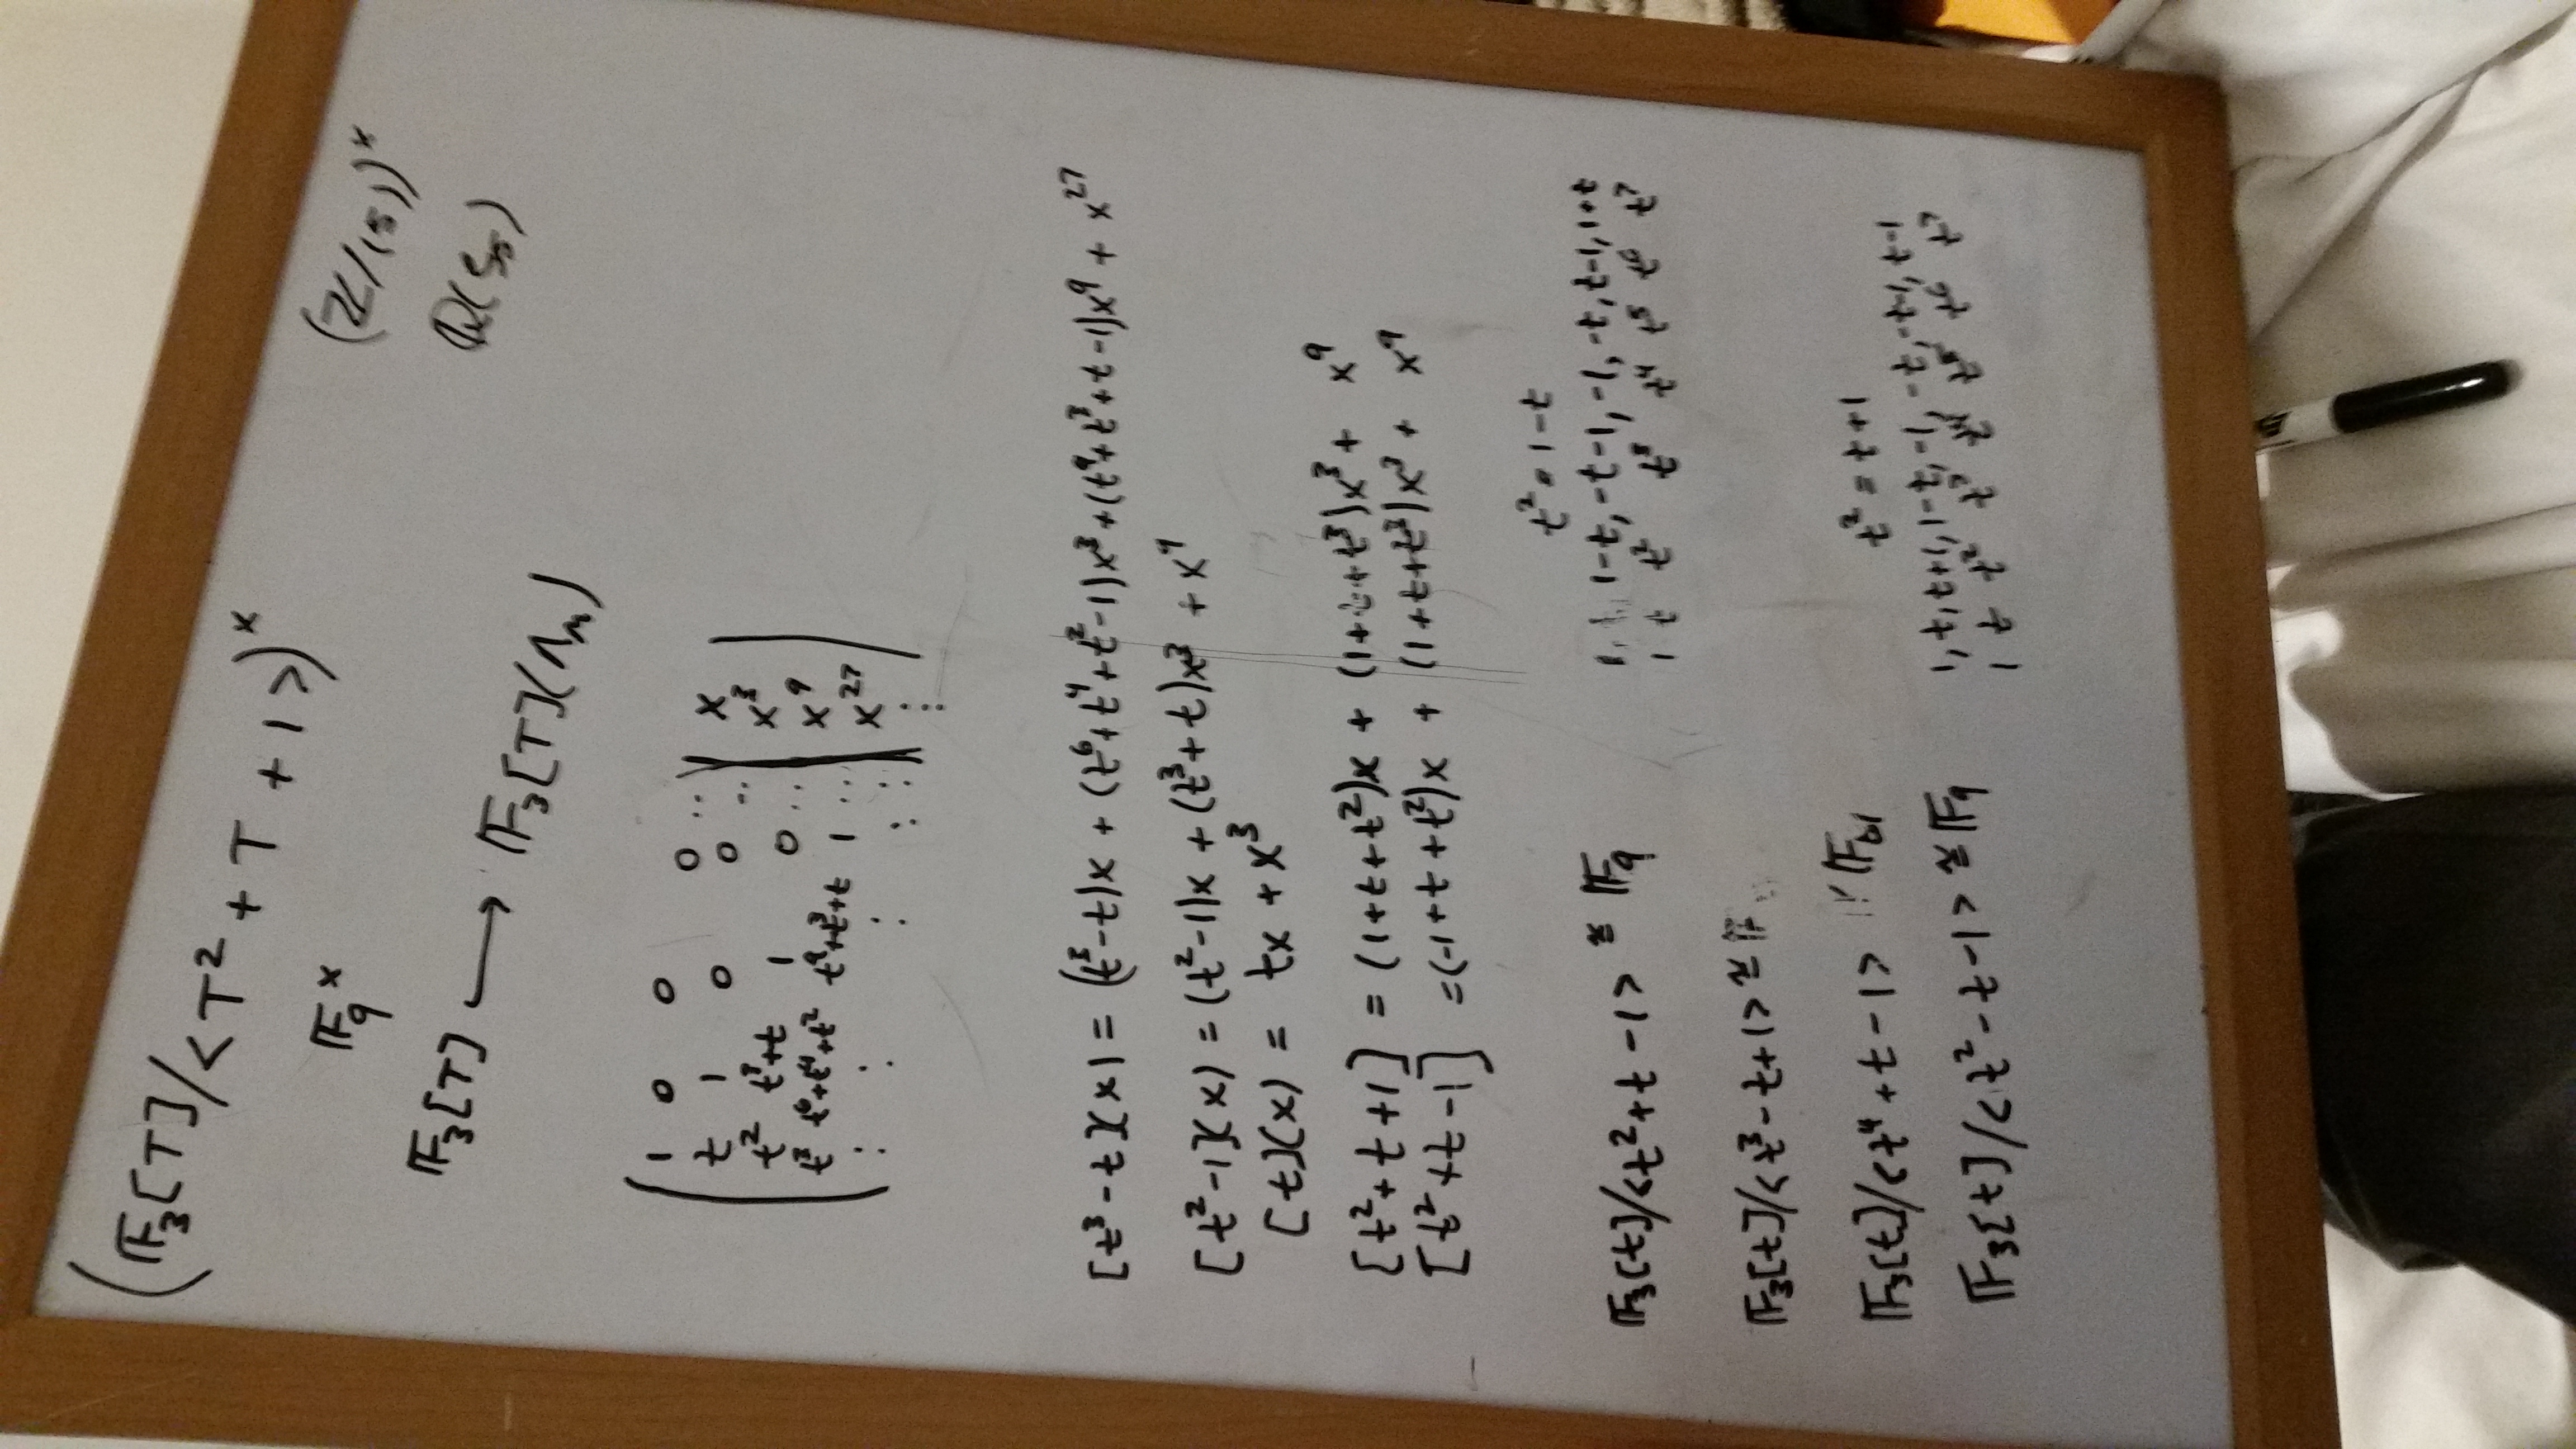 (𝔽₃[T]/<T² + T + 1>)ˣ
𝔽₉ˣ
(ℤ/(5))ˣ
𝔽₃[T] ⟶ 𝔽₃[T](Λₘ)
ℚ(ζ₅)
1 0 0 0 ‥ x
t 1 0 0 ‥ x³
t² t³+t 1 0 ‥ x⁹
t³ t⁶+t⁴+t² t⁹+t³+t 1 ‥ x²⁷
⋮ ⋮ ⋮ ⋮ ⋮ ⋮
[t³ - t](x) = (t³-t)x + (t⁶+t⁴+t²-1)x³ + (t⁹+t³+t-1)x⁹ + x²⁷
[t²-1](x) = (t²-1)x + (t³+t)x³ + x⁹
[t](x) = tx + x³
[t²+t+1] = (1+t+t²)x + (1+t+t³)x³ + x⁹
[t²+t-1] = (-1+t+t²)x + (1+t+t³)x³ + x⁹
t² = 1-t
𝔽₃[t]/<t²+t-1> ≅ 𝔽₉
1, 1-t, -t-1, -1, -t, t-1, 1+t
1 t t² t³ t⁴ t⁵ t⁶ t⁷
𝔽₃[t]/<t³-t+1> ≅ 𝔽
𝔽₃[t]/<t⁴+t-1> 𝔽₈₁
t² = t+1
𝔽₃[t]/<t²-t-1> ≅ 𝔽₉
1, t, t+1, 1-t, -1, -t, -t-1, t-1
1 t t² t³ t⁴ t⁵ t⁶ t⁷